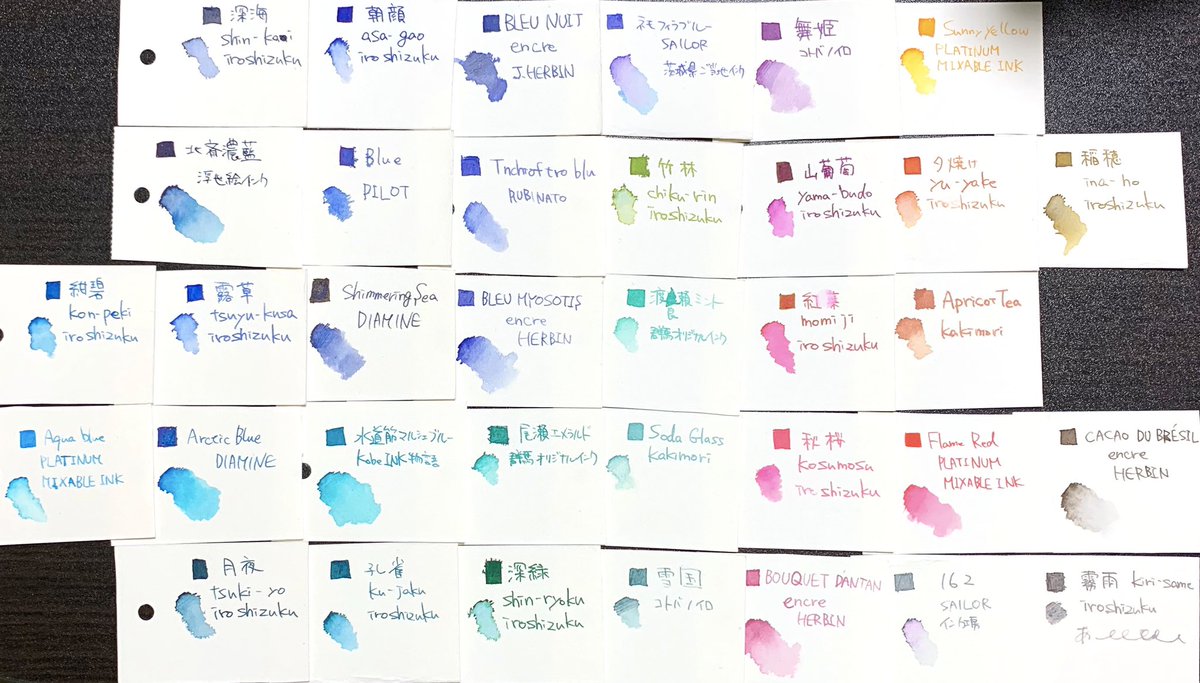 深海
shin-kai
iroshizuku
朝顔
asa-gao
iroshizuku
BLEU NUIT
encre
J.HERBIN
ネモフィラブルー
SAILOR
茨城県ご当地インク
舞姫
コトバノイロ
Sunny yellow
PLATINUM
MIXABLE INK
北斎濃藍
浮世絵インク
Blue
PILOT
blu
RUBINATO
竹林
chiku-rin
iroshizuku
山葡萄
yama-budo
iroshizuku
夕焼け
yu-yake
iroshizuku
稲穂
ina-ho
iroshizuku
紺碧
kon-peki
iroshizuku
露草
tsuyu-kusa
iroshizuku
Shimmering Sea
DIAMINE
BLEU MYOSOTIS
encre
HERBIN
渡良瀬ミント
群馬オリジナルインク
紅葉
momiji
iroshizuku
Apricot Tea
kakimori
Aqua blue
PLATINUM
MIXABLE INK
Arctic Blue
DIAMINE
水道筋マルシェブルー
Kobe INK 物語
尾瀬エメラルド
群馬オリジナルインク
Soda Glass
kakimori
秋桜
kosumosu
iroshizuku
Flame Red
PLATINUM
MIXABLE INK
CACAO DU BRÉSIL
encre
HERBIN
月夜
tsuki-yo
iroshizuku
孔雀
ku-jaku
iroshizuku
深緑
shin-ryoku
iroshizuku
雪国
コトバノイロ
BOUQUET D'ANTAN
encre
HERBIN
162
SAILOR
インク工房
霧雨 kiri-same
iroshizuku